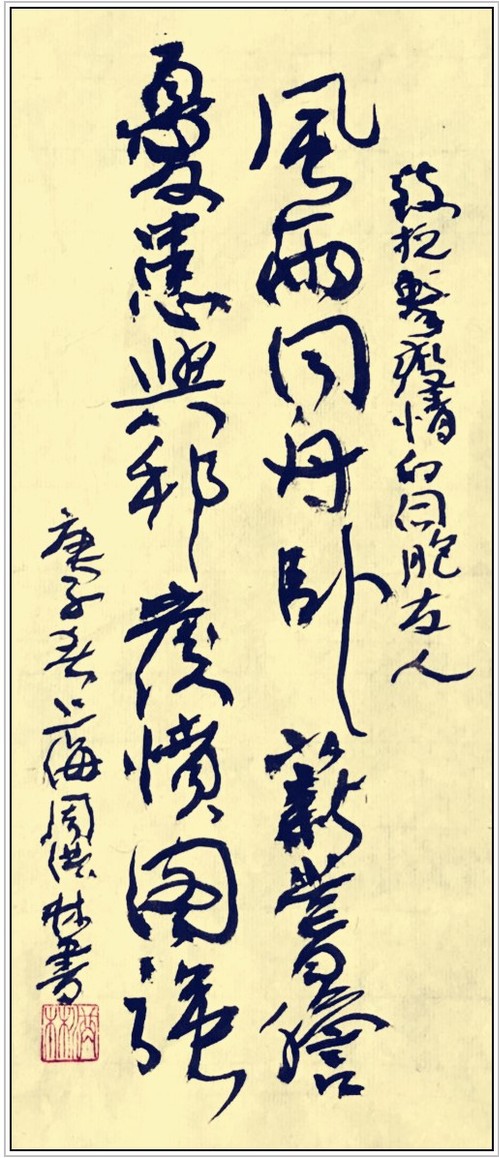 致抗擊疫情的同胞友人
風雨同舟卧薪嘗膽
憂患興邦發憤圖強
庚子春上海周洪林書